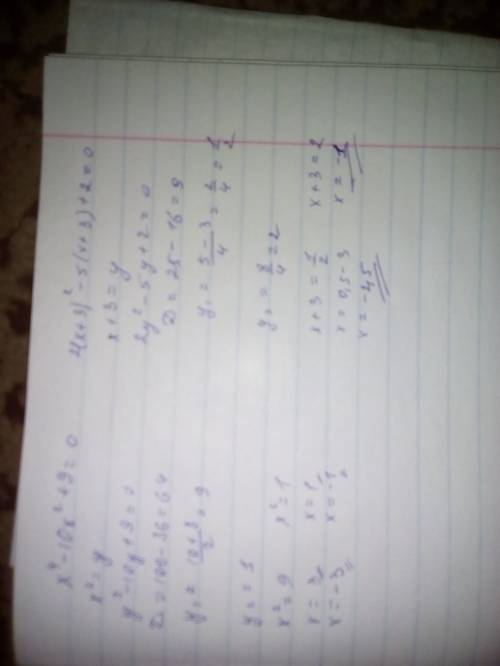 x⁴-10x²+9=0
x²=y
y²-10y+9=0
D=100-36=64
y₁=\frac{10+8}{2}=9
y₂=1
x²=9 x²=1
x=3 x=1
x=-3 x=-1
2(x+3)²-5(x+3)+2=0
x+3=y
2y²-5y+2=0
D=25-16=9
y₁=\frac{5-3}{4}=\frac{2}{4}=\frac{1}{2}
y₂=\frac{8}{4}=2
x+3=\frac{1}{2} x+3=2
x=0,5-3 x=-1
x=-2,5